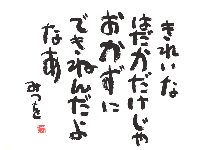 きれいな
はだかだけじゃ
おかずに
できねんだよ
なあ
みつを